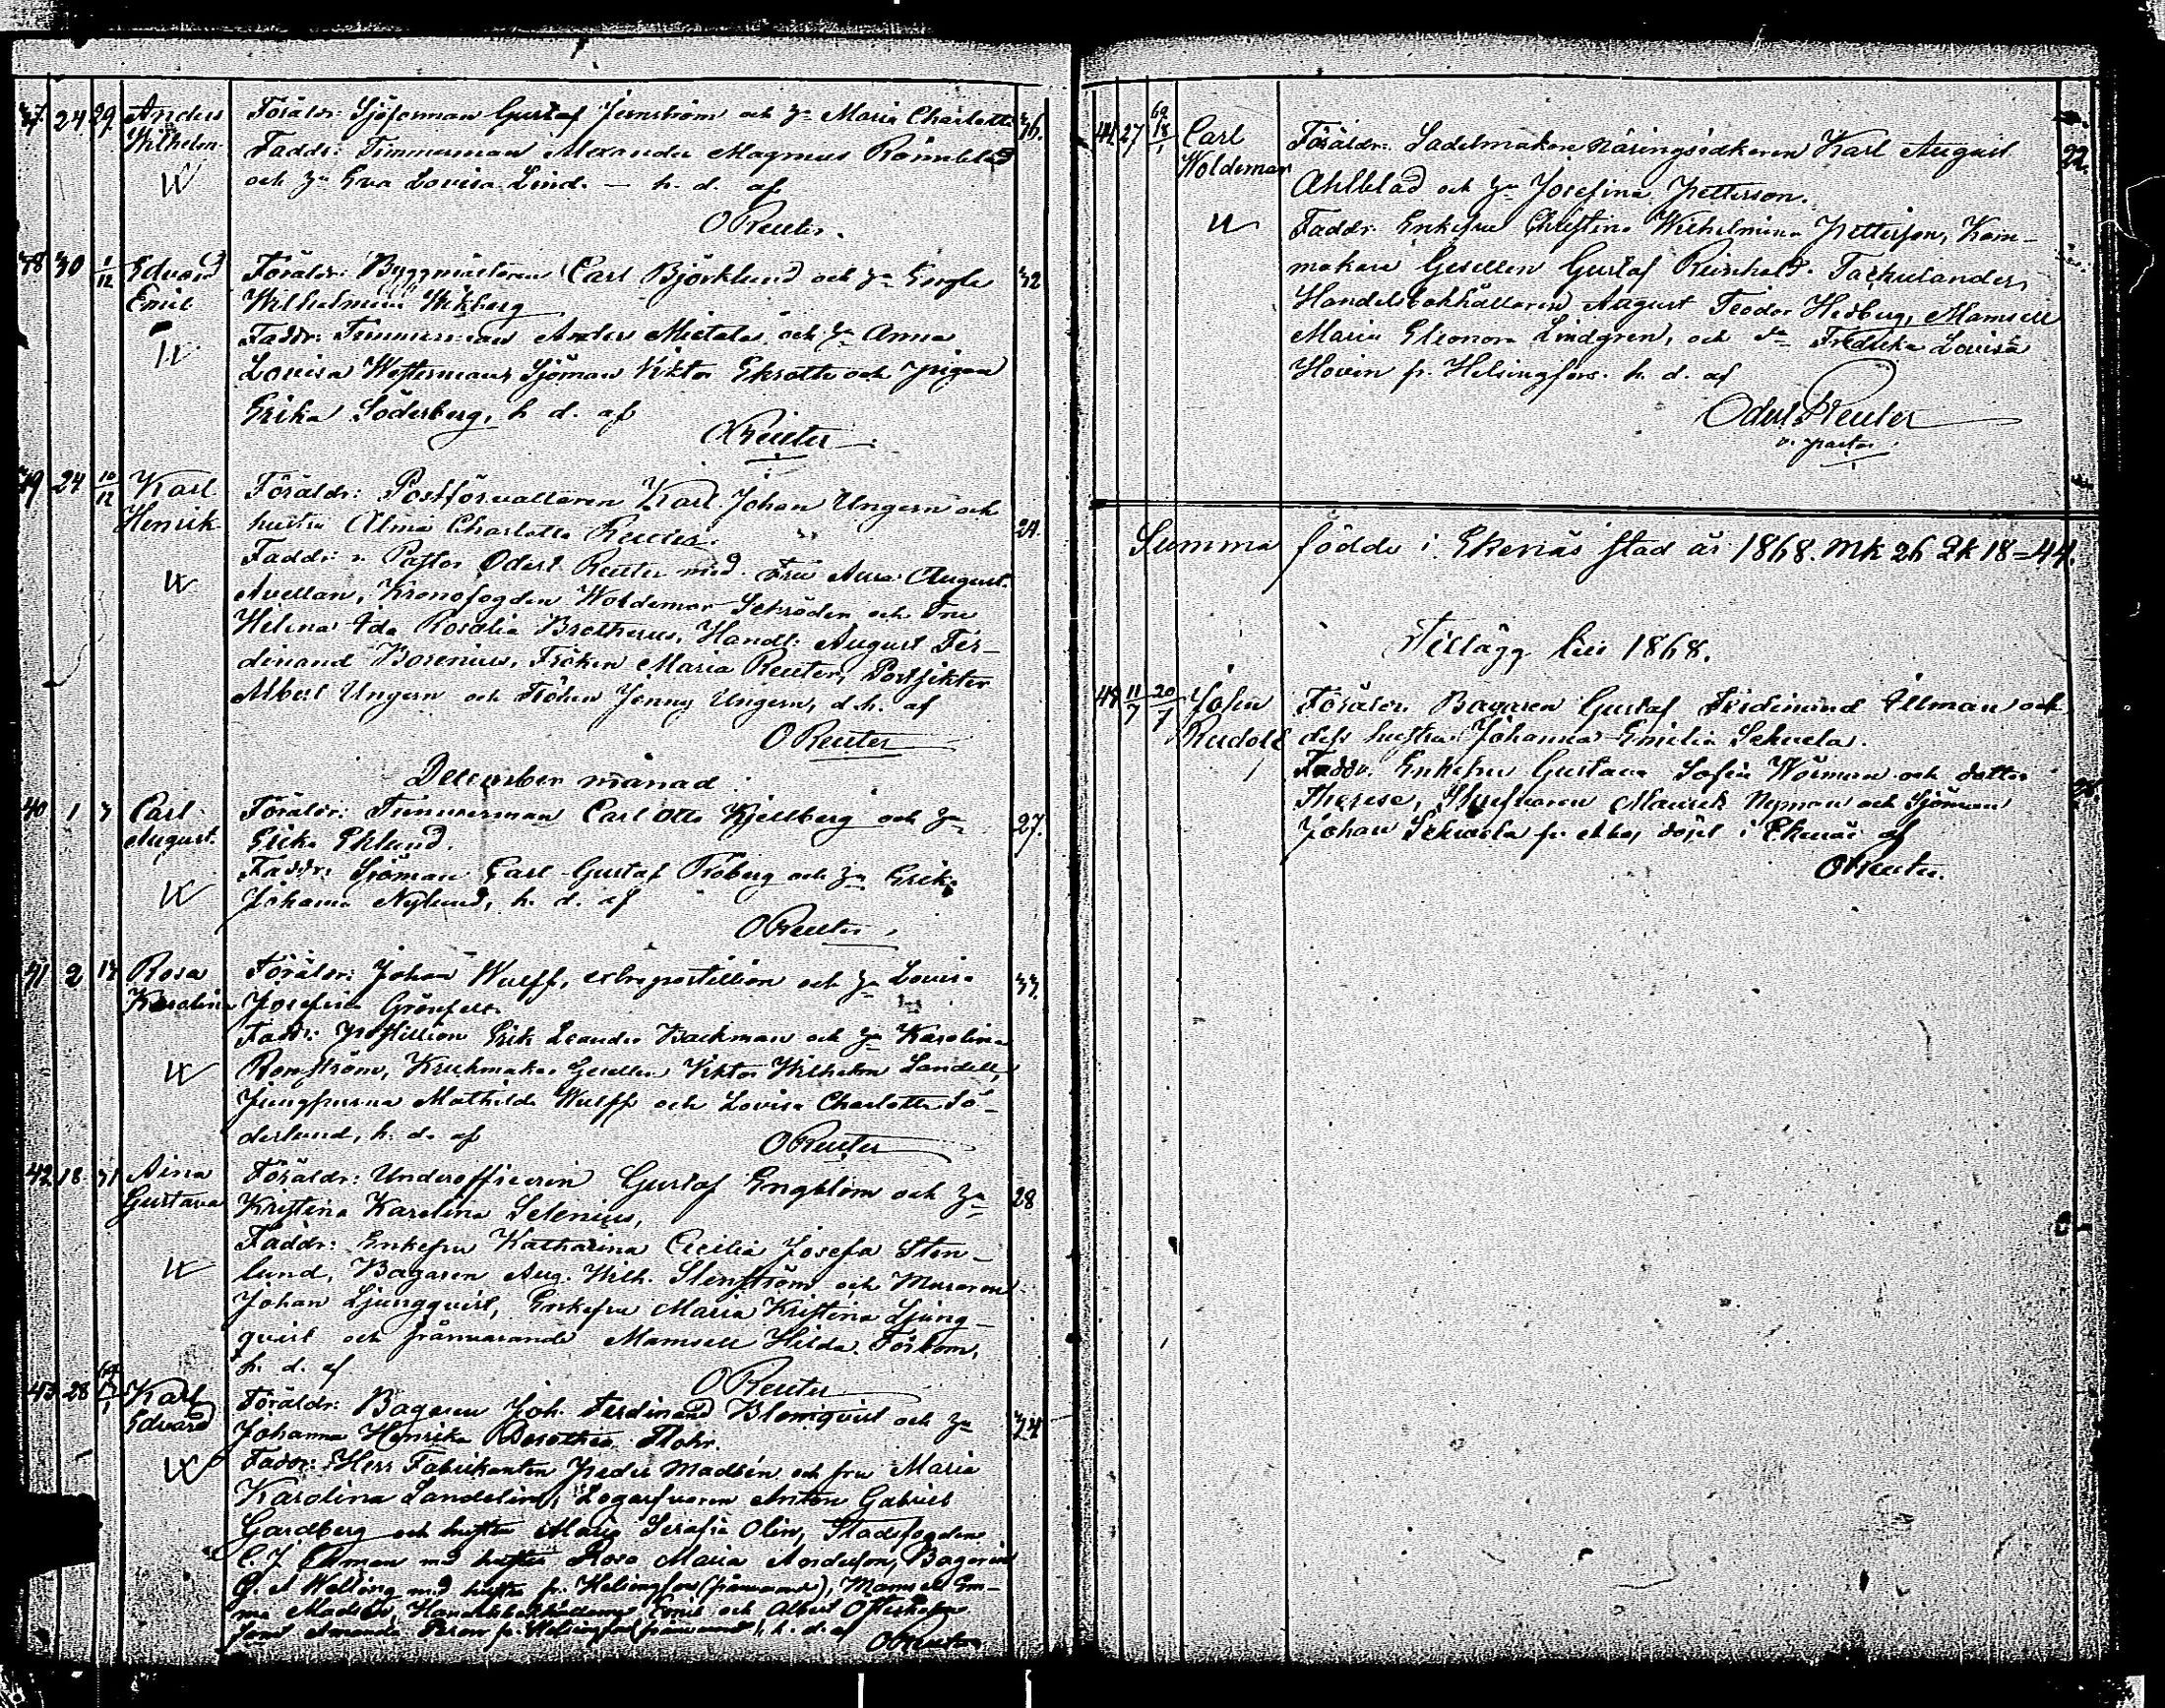 37. 24 29. Anders Wilhelm
Föräldr: Sjöferman Gustaf Jernström och hu Maria Charlotta 36.
Faddr: Timmerman Alexander Magnus Römblad
och hu Eva Lovisa Lind. — h. d. af
O Reuter.
38 30 1/12 Edvard Emil
Föräldr: Byggmästaren Carl Björklund och hu Engla 32
Wilhelmina Wikberg
Faddr: Timmerman Anders Mietala och hu Anna
Lovisa Westerman, Sjöman Viktor Ekroth och pigan
Erika Söderberg, h. d. af
O Reuter
39 24 10/12 Karl Henrik
Föräldr: Postförvaltaren Karl Johan Ungern och
hustru Alma Charlotta Reuter. 24.
Faddr: v. Pastor Odert Reuter med Fru Aura August.
Avellan, Kronofogden Woldemar Schröder och Fru
Helena Ida Rosalia Brotherus, Handl: August Fer-
dinand Borenius, Fröken Maria Reuter, Postfikter
Albert Ungern och Fröken Jenny Ungern, d. h. af
O Reuter
December månad
40 1 3 Carl August.
Föräldr: Timmerman Carl Otto Kjellberg och hu 27.
Erika Eklund.
Faddr: Sjöman Carl Gustaf Froberg och hu Erika
Johanna Nylund, h. d. af
O Reuter
41 2 13 Rosa Karolina
Föräldr: Johan Wulff, extrapostillion och hu Lovisa 33.
Josefina Grönfelt.
Faddr: Postillion Erik Leander Backman och hu Karolina
Romström, Krukmakar Gesellen Viktor Wilhelm Sandell,
Jungfrurna Mathilda Wulff och Lovisa Charlotta Sö-
derlund, h. d. af
O Reuter
42. 18. 31 Aina Gustava
Föräldr: Underofficeren Gustaf Engblom och hu 28
Kristina Karolina Selenius,
Faddr: Enkefru Katharina Cecilia Josefa Sten-
lund, Bagaren Aug. Wilh. Stenström och Muraren
Johan Ljungqvist, Enkefru Maria Kristina Ljung-
qvist och frånvarande Mamsell Hilda Förbom,
h. d. af
O Reuter
43 28 Karl Edvard
Föräldr: Bagaren Joh. Ferdinand Blomqvist och hu 34
Johanna Henrika Dorothea Flohr.
Faddr: Herr Fabrikanten Peder Madsén och fru Maria
Karolina Sandelin, Logarfvaren Anton Gabriel
Gardberg och hustru Maria Serafia Olin, Stadsfogden
C. J. Öhman med hustru Rosa Maria Anderson, Bagaren
G. A Welling med hustru fr. Helsingfors (frånvarande), Mamsell Em-
ma Madsén, Handelsbokhållarne Emil och Albert
Amanda fr. Helsingfors (frånvarande), h. d. af O Reuter
44. 27 69 18/1 Carl Woldemar
Föräldr: Sadelmakare näringsidkaren Karl August 22.
Ahlblad och hu Josefina Petterson.
Faddr: Enkefru Christina Wilhelmina Petterson, Kam-
makare Gesellen Gustaf Reinhold Tackulander,
Handelsbokhållaren August Teodor Hedberg, Mamsell
Maria Eleonora Lindgren, och Fredrika Lovisa
Hovin fr. Helsingfors. h. d. af
Odert Reuter
v. pastor
Summa födde i Ekenäs stad år 1868. Mk 26 Qk 18=44.
Tillägg till 1868.
11/7 20/7 John Rudolf
Föräldr: Bagaren Gustaf Ferdinand Öllman och
dess hustru Johanna Emilia Schucla.
Faddr: Enkefru Gustava Sofia Wörman och dotter
Therese, Maurits Nyman och Sjöman
Johan Schucla fr. Åbo, döpt i Ekenäs af
O Reuter.